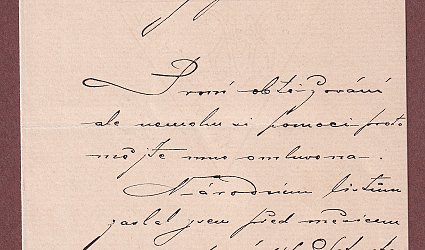 Promi obtěžování
ale nemohu si pomoci proto
mějte mne omluvena.
Národním listům
zaslal jsem před měsícem